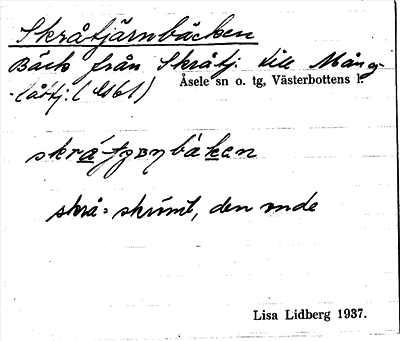 Skråtjärnbäcken
Bäck från Skråtj. till Mång-
-tåtj.
Åsele sn o. tg, Västerbottens l.
skrå = skrümt, den onde
Lisa Lidberg 1937.